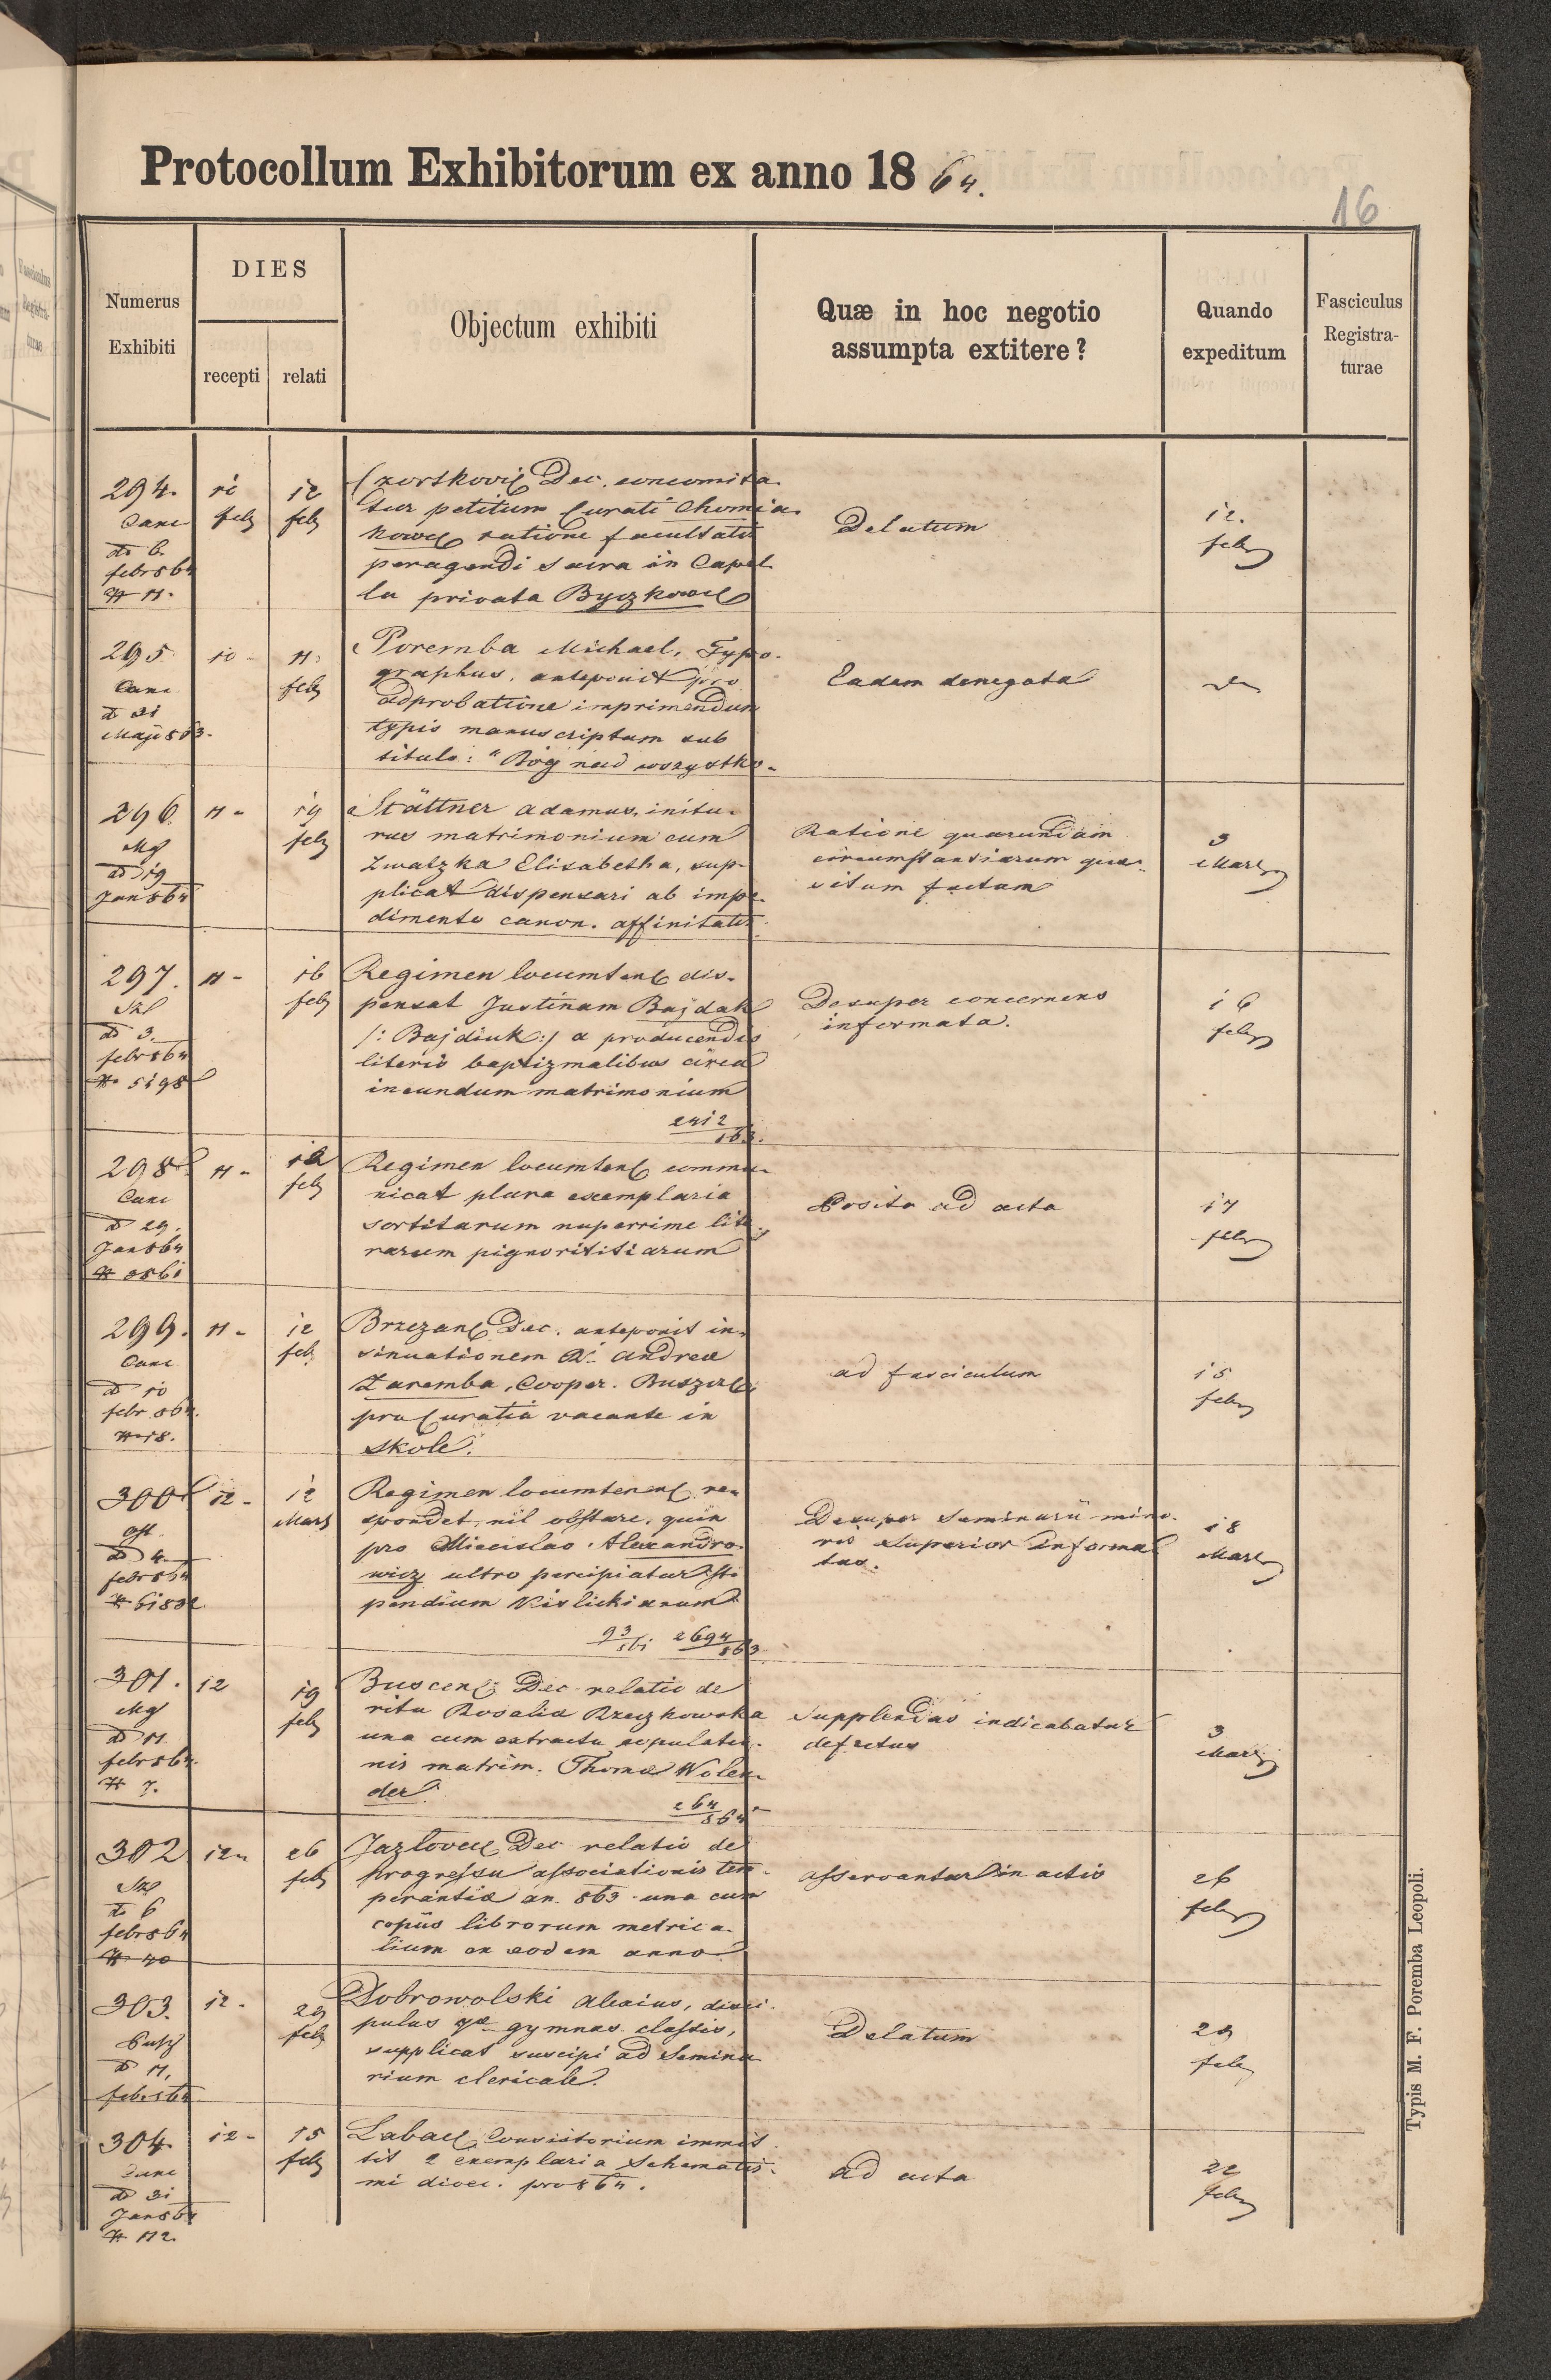 Protocollum Exhibitorum ex anno 1864.
16
Numerus Exhibiti
DIES
recepti
relati
Objectum exhibiti
Quæ in hoc negotio assumpta extitere?
Quando expeditum
Fasciculus Registra-turae
294.
Canc
do 6.
febr 864
# 11.
11 feb
12 feb
Czortkovic Dec. concomita-
tur petitum Curati Chomia-
kowc ratione facultatis
peragendi sacra in Capel-
la privata Byczkowc
Delatum
12. febr
295
Canc
do 31
Maji 863.
10 -
11. feb
Poremba Michael, Typo-
graphus, anteponit pro
adprobatione imprimendum
typis manuscriptum sub
titulo: "Bóg nad wszystko-
Eadem denegata
296.
Mg
do 19
Jan 864
11 -
19 feb
Stättner Adamus, initu-
rus matrimonium cum
Zwatzka Elisabetha, sup-
plicat dispensari ab impe-
dimento canon. affinitatis
Ratione quarundam
circumstantiarum quae-
situm factum
3 Mart
297.
Skl
do 3.
febr 864
# 5198
11 -
16 feb
Regimen locumtenc dis-
pensat Justinam Bajdak
/: Bajdiuk :/ a producendis
literis baptizmalibus circa
ineundum matrimonium
2412
863.
Desuper concernens
informata.
16 febr
298
Canc
do 29.
Jan 864
# 3861
11 -
12 feb
Regimen locumtenc commu-
nicat plura exemplaria
sortitarum nuperrime lite-
rarum pignorititiarum
Posita ad acta
17 febr
299.
Canc
do 10
febr 864.
# 18.
11 -
12 feb
Brzezanc Dec. anteponit in-
sinuationem Rdi Andreae
Zaremba, Cooper. Buszczc
pro Curatia vacante in
Skole.
ad fasciculum
15 febr
300
Ost.
do 4
febr 864
# 61832
12 -
12 Mart
Regimen locumtenenc re-
spondet, nil obstare, quin
pro Miecislao Alexandro-
wicz ultro percipiatur sti-
pendium Kislickianum
93
861
2694
863
Desuper Seminarii mino-
ris Superior informa-
tus.
18 Mart
301.
Mg
do 11.
febr 864.
# 7.
12
19 feb
Buscenc Dec. relatio de
ritu Rosaliae Brzezkowska
una cum extractu copulatio-
nis matrim. Thomae Wolen-
der.
264
864
Supplendus indicabatur
defectus
3 Mart
302
Skl
do 6
febr 864
# 40
12
26 feb
Jazlovec Dec. relatio de
progressu associationis tem-
perantiae an. 863 una cum
copiis librorum metrica-
lium ex eodem anno
Asservantur in actis
26 febr
303.
do 11,
feb. 864
12 -
29 feb
Dobrowolski Alexius, disci-
pulus 8ae gymnas. classis,
supplicat suscipi ad Semina-
rium clericale.
Delatum
29 feb
304.
Canc
do 31
Jan 864
# 112.
12 -
15 feb
Labac Consistorium immit-
tit 2 exemplaria Schematis-
mi dioec. pro 864.
ad acta
22 febr
Typis M. F. Poremba Leopoli.